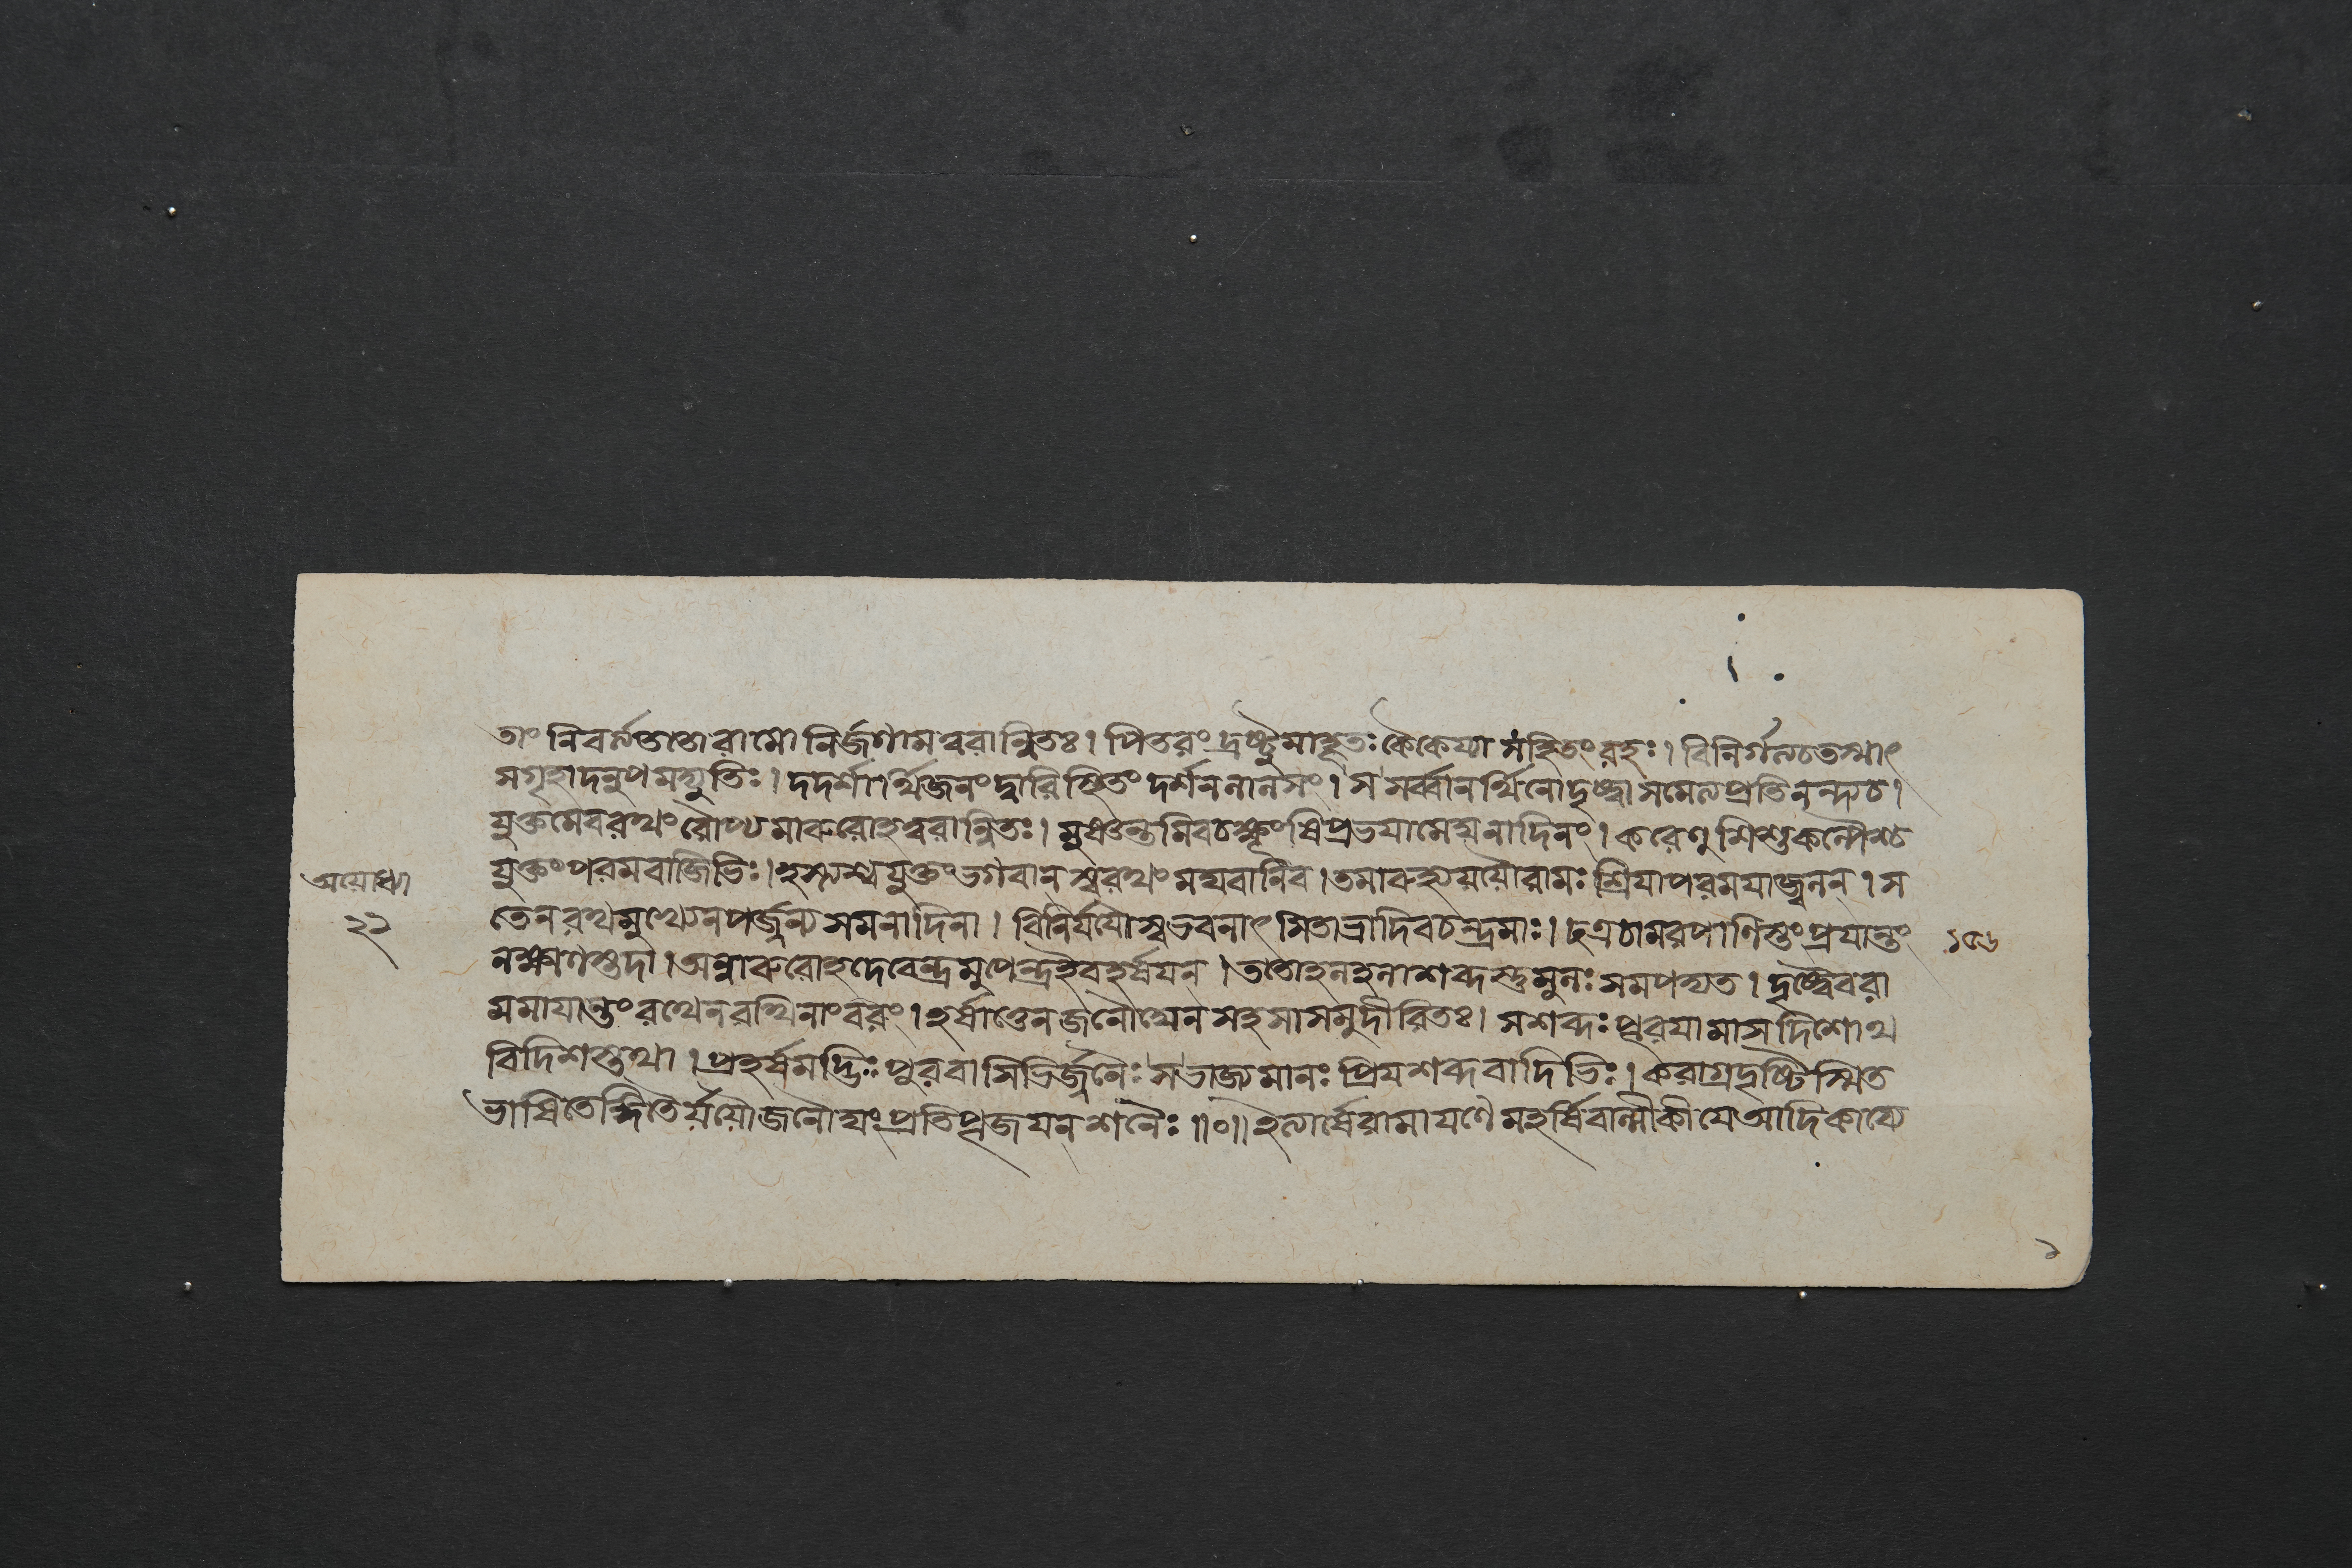 তাং নিবর্ত্য ততো রামো নির্জগাম ত্বরান্বিতঃ। পিতরং দ্রষ্টুমাহূতঃ কৈকেয্যা সহিতং রহঃ। বিনির্গত্য চ তস্মাৎ
স গৃহাদনুপমদ্যুতিঃ। দদর্শার্থিজনং দ্বারি স্থিতং দর্শনলালসং। স সর্ব্বানর্থিনো দৃষ্ট্বা সমেত্য প্রতিনন্দ্য চ।
যুক্তমেব রথং রৌপ্যমারুরোহ ত্বরান্বিতঃ। মুষ্ণন্তমিব চক্ষূংষি প্রভযা মেঘনাদিনং। করেণুশিশুকল্পৈশ্চ
যুক্তং পরমবাজিভিঃ। হর্য্যশ্বযুক্তং ভগবান্ স্বরথং মঘবানিব। তমারুহ্য যযৌ রামঃ শ্রিযা পরমযা জ্বলন্। স
তেন রথমুখ্যেন পর্জ্জন্যসমনাদিনা। বিনির্যযৌ স্বভবনাৎ সিতাভ্রাদিব চন্দ্রমাঃ। ছত্রচামরপাণিস্তং প্রযান্তং
লক্ষ্মণস্তদা। অন্বারুরোহ দেবেন্দ্রমুপেন্দ্র ইব হর্ষযন্। ততো হলহলাশব্দস্তুমুলঃ সমপদ্যত। দৃষ্ট্বৈব রা
মমাযান্তং রথেন রথিনাং বরং। হর্ষাত্তেন জনৌঘেন সহসা সমুদীরিতঃ। স শব্দঃ পূরযামাস দিশোথ
বিদিশস্তথা। প্রহর্ষমদ্ভিঃ পুরবাসিভির্জ্জনৈঃ সভাজ্যমানঃ প্রিযশব্দবাদিভিঃ। করাগ্রদৃষ্টিস্মিত
ভাষিতেঙ্গিতৈর্যযৌ জনৌঘং প্রতিপূজযন্ শনৈঃ॥০॥ ইত্যার্ষে রামাযণে মহর্ষিবাল্মীকীযে আদিকাব্যে
অযোধ্যা
২২
১